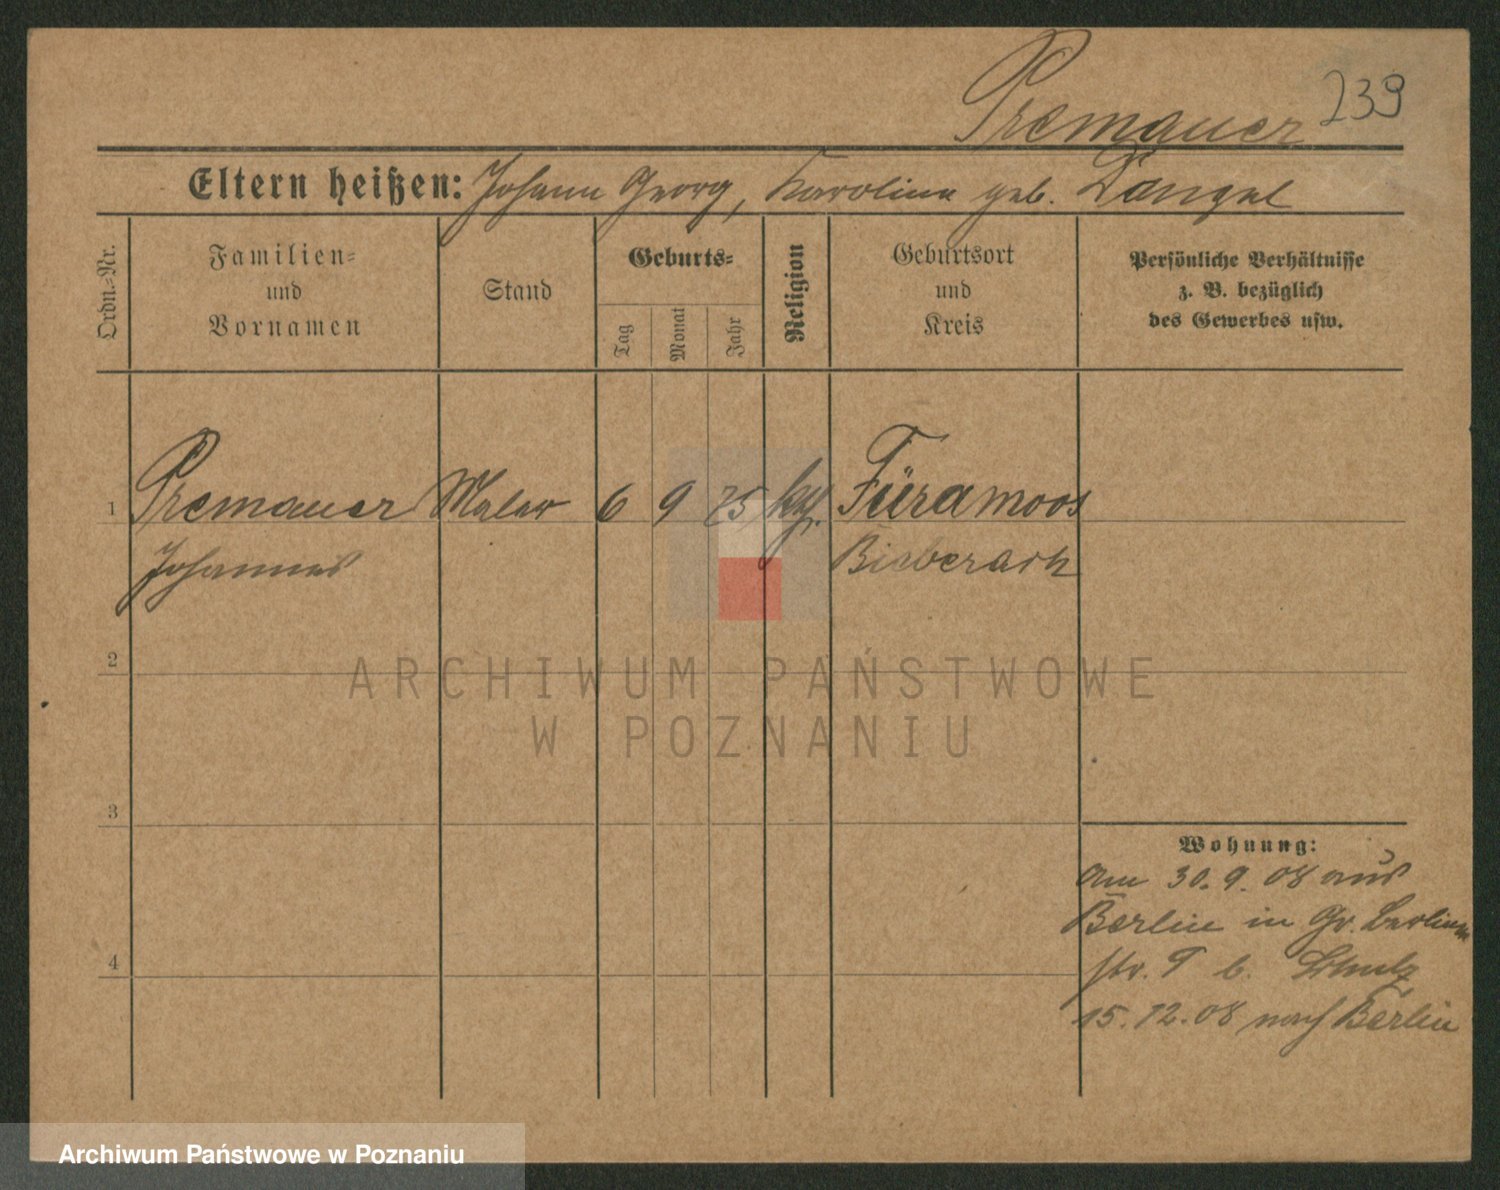 Premauer 239
Eltern heißen: Johann Georg, Karolina geb. Dangel
Ordn.-Nr.
Familien-
und
Vornamen
Stand
Geburts-
Tag
Monat
Jahr
Religion
Geburtsort
und
Kreis
Persönliche Verhältnisse
z. B. bezüglich
des Gewerbes usw.
1 Premauer Maler 6 9 75 kg. Füramoos
Johannes Bieberach
2
ARCHIWUM PAŃSTWOWE
W POZNANIU
3
Wohnung:
am 30.9.08 aus
Berlin in Gr. Berliner
4
str. 9 b. Schulz
15.12.08 nach Berlin
Archiwum Państwowe w Poznaniu